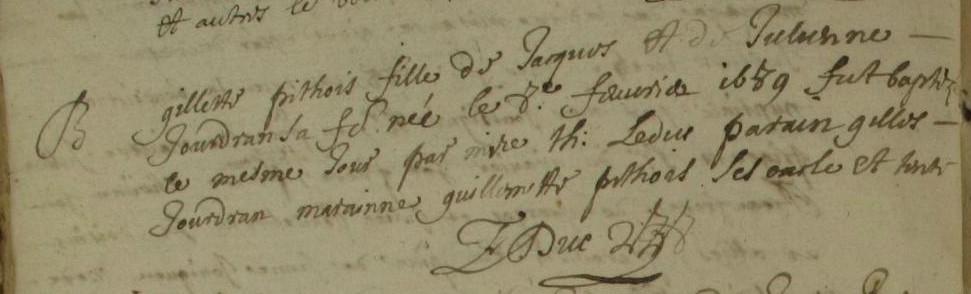 et autres le
B
gillette pithois fille de Jacques et de Julienne
Jourdran sa fe. née le 8.e feuvrier 1689 fut baptisé
le mesme Jour par mire th: Leduc parain gilles
Jourdran marainne guillemette pithois ses oncle et tante
T Duc